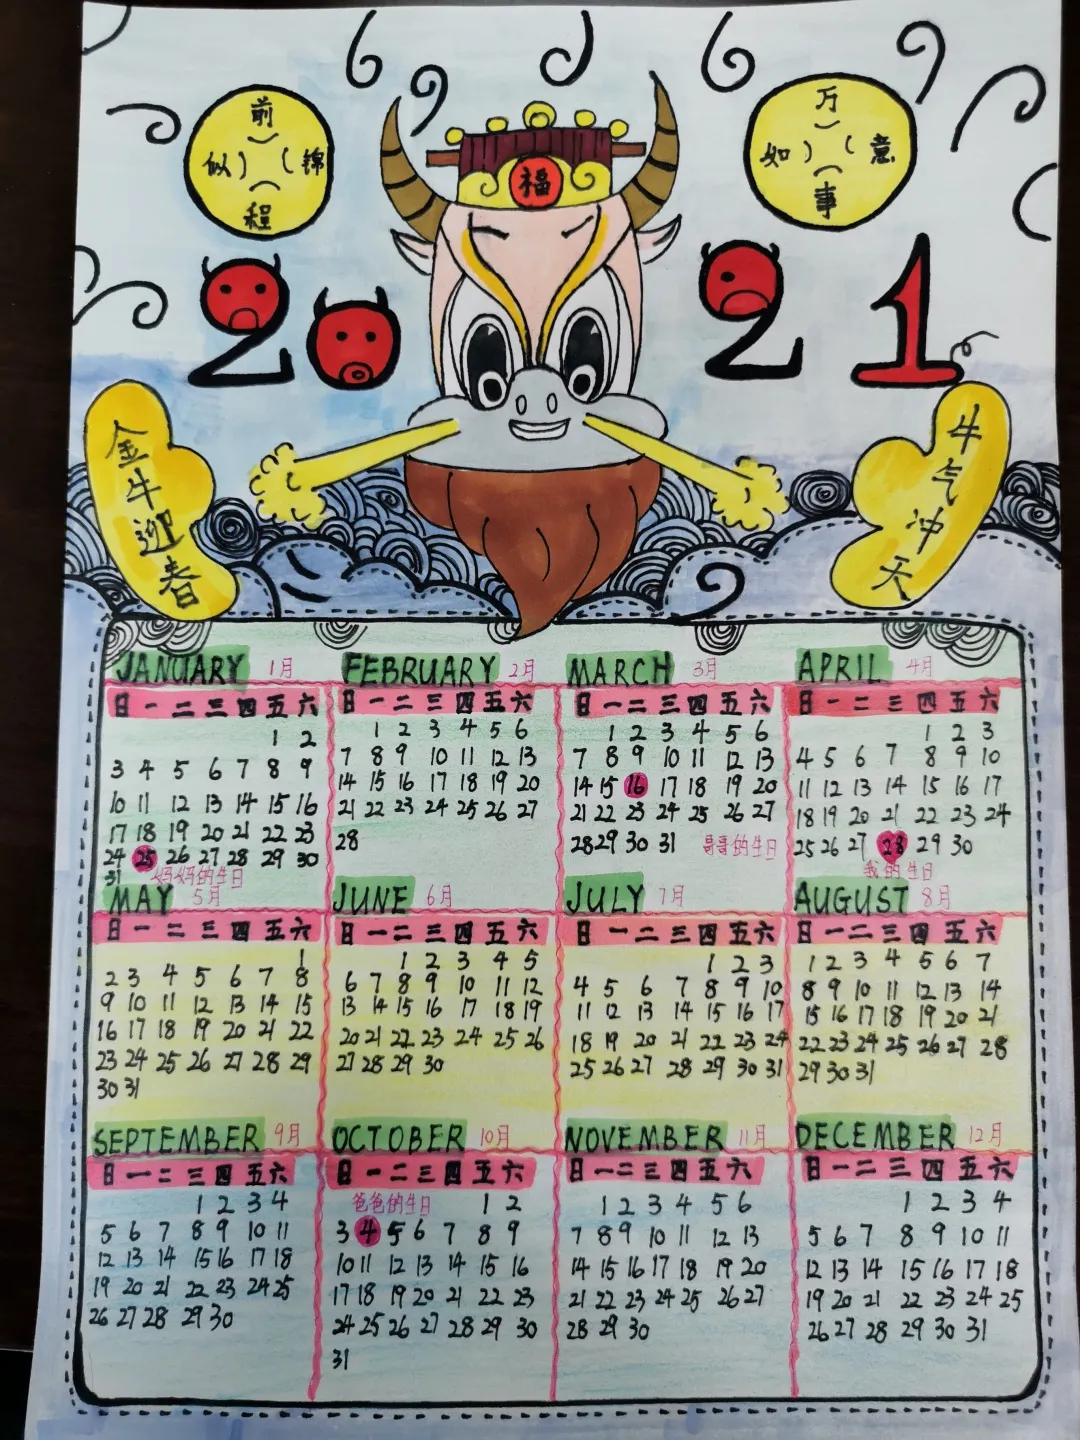 前
似 锦
程
万
如 意
事
福
2021
金牛迎春
牛气冲天
JANUARY 1月
日 一 二 三 四 五 六
1 2
3 4 5 6 7 8 9
10 11 12 13 14 15 16
17 18 19 20 21 22 23
24 25 26 27 28 29 30
31 妈妈的生日
FEBRUARY 2月
日 一 二 三 四 五 六
1 2 3 4 5 6
7 8 9 10 11 12 13
14 15 16 17 18 19 20
21 22 23 24 25 26 27
28
MARCH 3月
日 一 二 三 四 五 六
1 2 3 4 5 6
7 8 9 10 11 12 13
14 15 16 17 18 19 20
21 22 23 24 25 26 27
28 29 30 31 哥哥的生日
APRIL 4月
日 一 二 三 四 五 六
1 2 3
4 5 6 7 8 9 10
11 12 13 14 15 16 17
18 19 20 21 22 23 24
25 26 27 28 29 30
我的生日
MAY 5月
日 一 二 三 四 五 六
1
2 3 4 5 6 7 8
9 10 11 12 13 14 15
16 17 18 19 20 21 22
23 24 25 26 27 28 29
30 31
JUNE 6月
日 一 二 三 四 五 六
1 2 3 4 5
6 7 8 9 10 11 12
13 14 15 16 17 18 19
20 21 22 23 24 25 26
27 28 29 30
JULY 7月
日 一 二 三 四 五 六
1 2 3
4 5 6 7 8 9 10
11 12 13 14 15 16 17
18 19 20 21 22 23 24
25 26 27 28 29 30 31
AUGUST 8月
日 一 二 三 四 五 六
1 2 3 4 5 6 7
8 9 10 11 12 13 14
15 16 17 18 19 20 21
22 23 24 25 26 27 28
29 30 31
SEPTEMBER 9月
日 一 二 三 四 五 六
1 2 3 4
5 6 7 8 9 10 11
12 13 14 15 16 17 18
19 20 21 22 23 24 25
26 27 28 29 30
OCTOBER 10月
日 一 二 三 四 五 六
爸爸的生日 1 2
3 4 5 6 7 8 9
10 11 12 13 14 15 16
17 18 19 20 21 22 23
24 25 26 27 28 29 30
31
NOVEMBER 11月
日 一 二 三 四 五 六
1 2 3 4 5 6
7 8 9 10 11 12 13
14 15 16 17 18 19 20
21 22 23 24 25 26 27
28 29 30
DECEMBER 12月
日 一 二 三 四 五 六
1 2 3 4
5 6 7 8 9 10 11
12 13 14 15 16 17 18
19 20 21 22 23 24 25
26 27 28 29 30 31